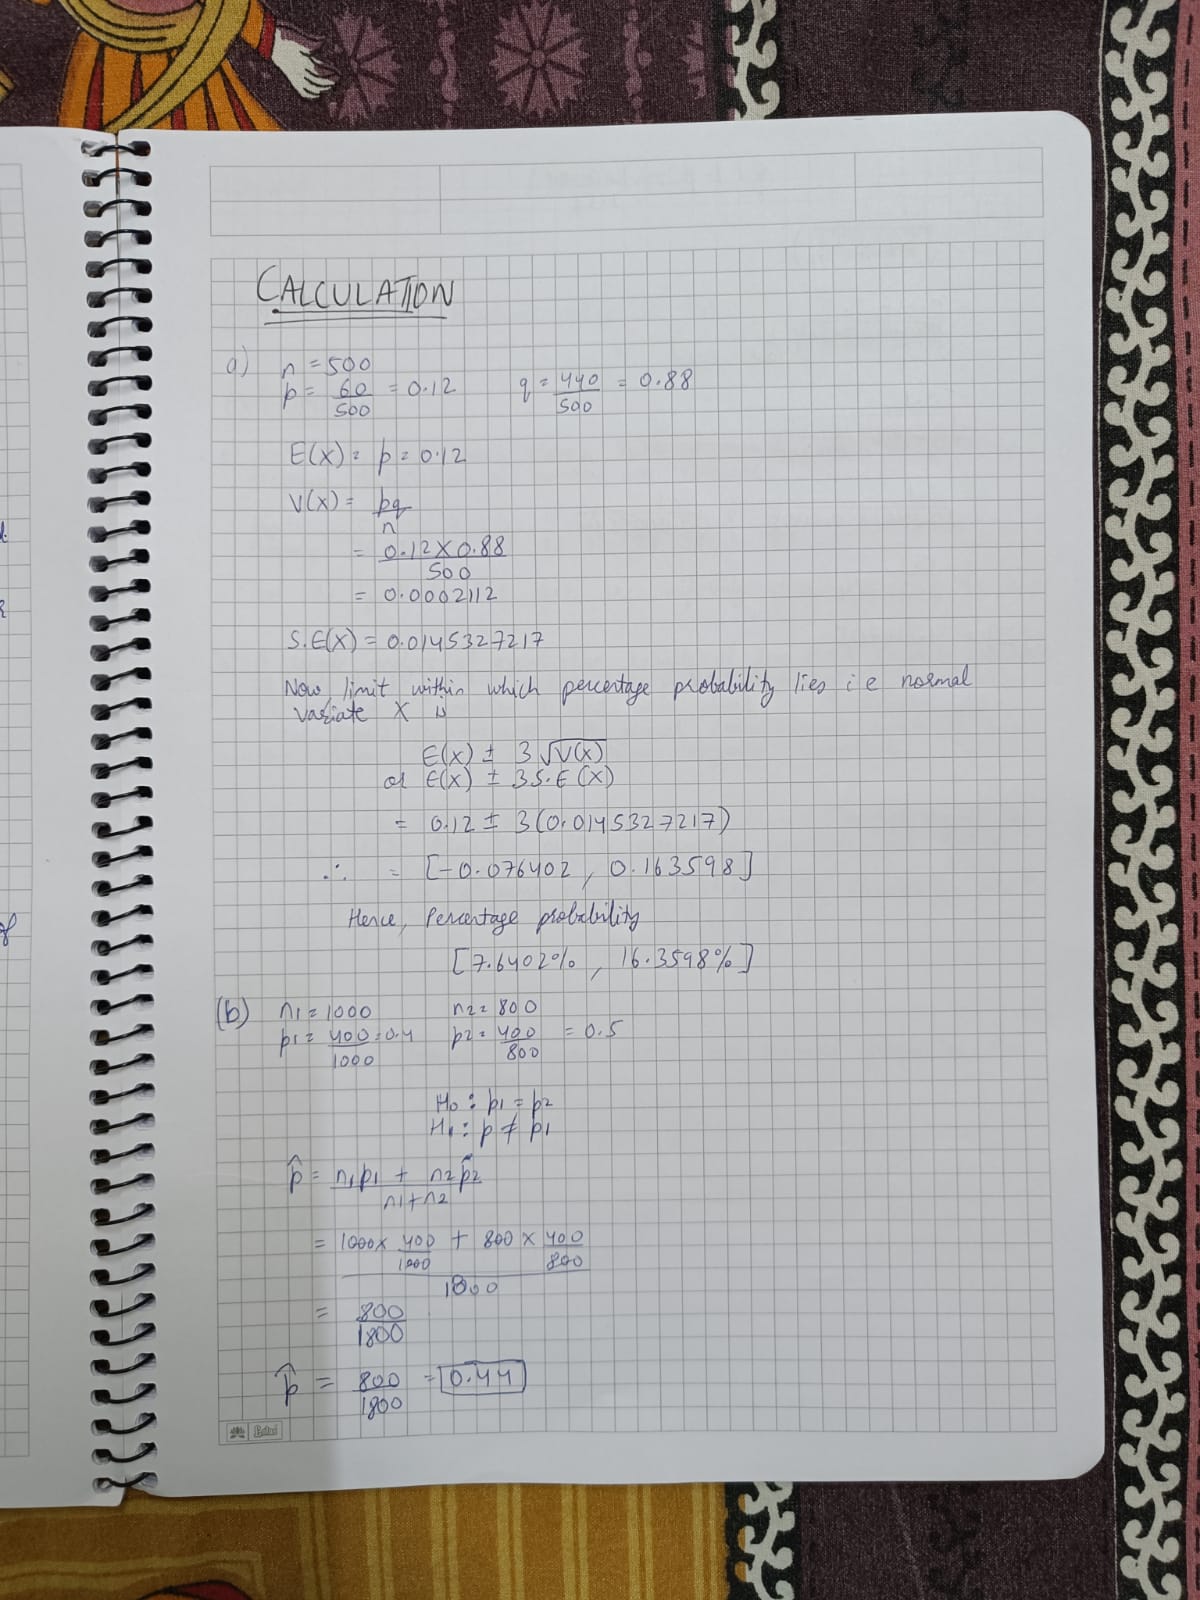 CALCULATION
a) n = 500
p = 60/500 = 0.12 q = 440/500 = 0.88
E(X) = p = 0.12
V(X) = pq/n
= 0.12 X 0.88/500
= 0.0002112
S.E(X) = 0.0145327217
Now, limit within which percentage probability lies i e normal
variate X is
E(X) ± 3 √V(X)
or E(X) ± 3 S.E (X)
= 0.12 ± 3(0.0145327217)
∴ = [-0.076402, 0.163598]
Hence, Percentage probability
[7.6402%, 16.3598%]
(b) n1 = 1000 n2 = 800
p1 = 400/1000 = 0.4 p2 = 400/800 = 0.5
H0 : p1 = p2
H1 : p ≠ p1
p̂ = n1p1 + n2p2/n1+n2
= 1000 x 400/1000 + 800 x 400/800
1800
= 800/1800
p̂ = 800/1800 = 0.44